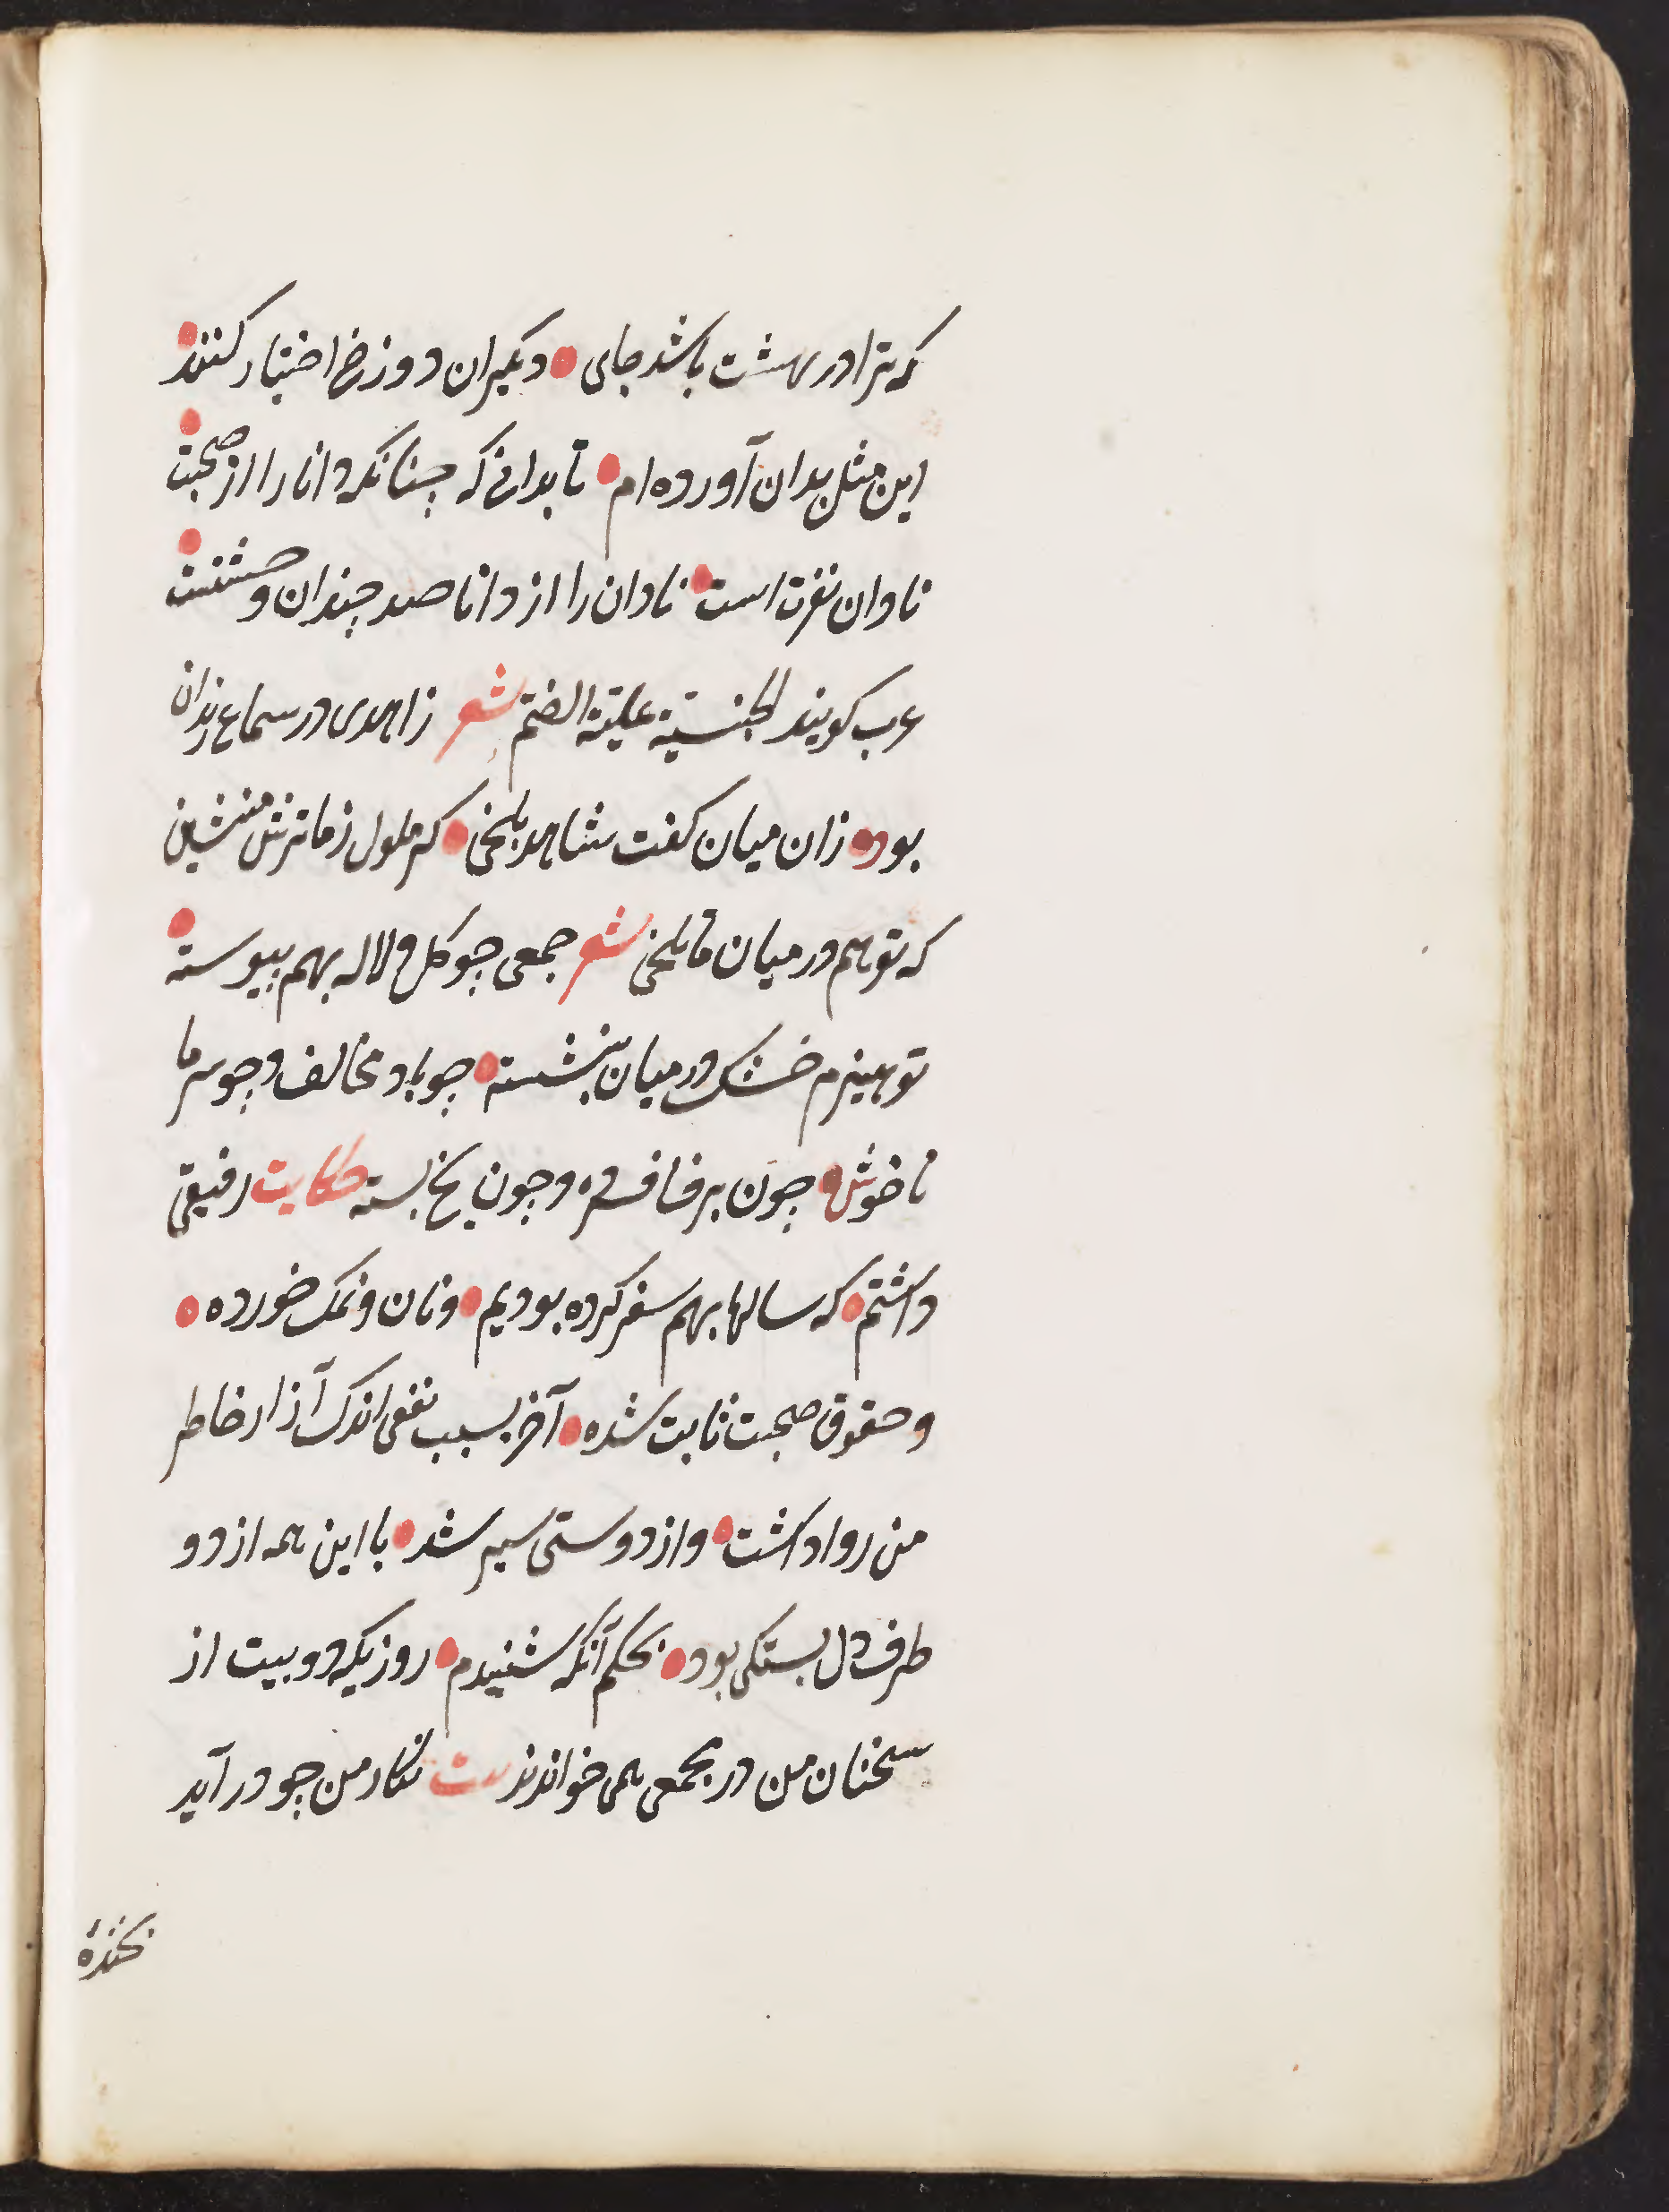 که ترا در بهشت باشد جای • دیگران دوزخ اختیار کنند •
این مثل بدان آورده ام • تا بدانی که چنانکه دانا را از صحبت •
نادان نفرت است • نادان را از دانا صد چندان وحشتست •
عرب کویند الجنسیة علیة الضتم شعر زاهدی در سماع رندان
بود • زان میان کفت شاهد بلخی • که ملول زما ترش منشین
که تو هم در میان ما تلخی شعر جمعی چو کل و لاله بهم پیوسته •
تو هیزم خشک در میان بنشسته • چو باد مخالف و چو سرما
ناخوش • چون برف افسرده و چون یخ بسته حکایت رفیقی
داشتم • که سالها بهم سفر کرده بودیم • و نان و نمک خورده •
و حقوق صحبت ثابت شده • آخر بسبب نفعی اندک آزار خاطر
من روا داشت • و از دوستی سیر شد • با این همه از دو
طرف دل بستکی بود • بحکم آنکه شنیدم • روزیکه دو بیت از
سخنان من در مجمعی همی خواندند بیت نکار من چو در آید
بخندهٔ